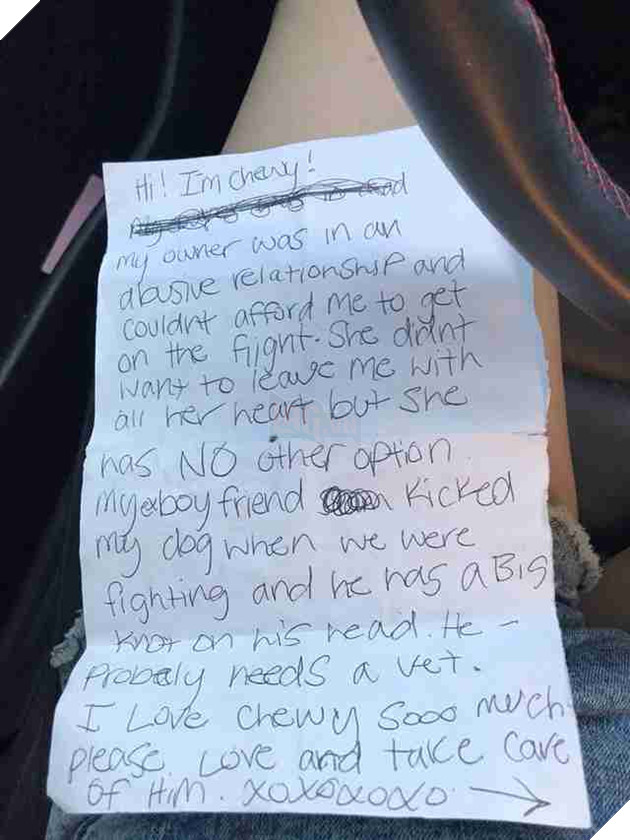 Hi! I'm Chewy!
my owner was in an
abusive relationship and
couldnt afford me to get
on the flight. She didnt
want to leave me with
all her heart but she
has NO other option.
My ex boyfriend kicked
my dog when we were
fighting and he has a Big
knot on his head. He
probaly needs a vet.
I Love Chewy Sooo much
please Love and take care
OF HiM. xoxoxoxo →